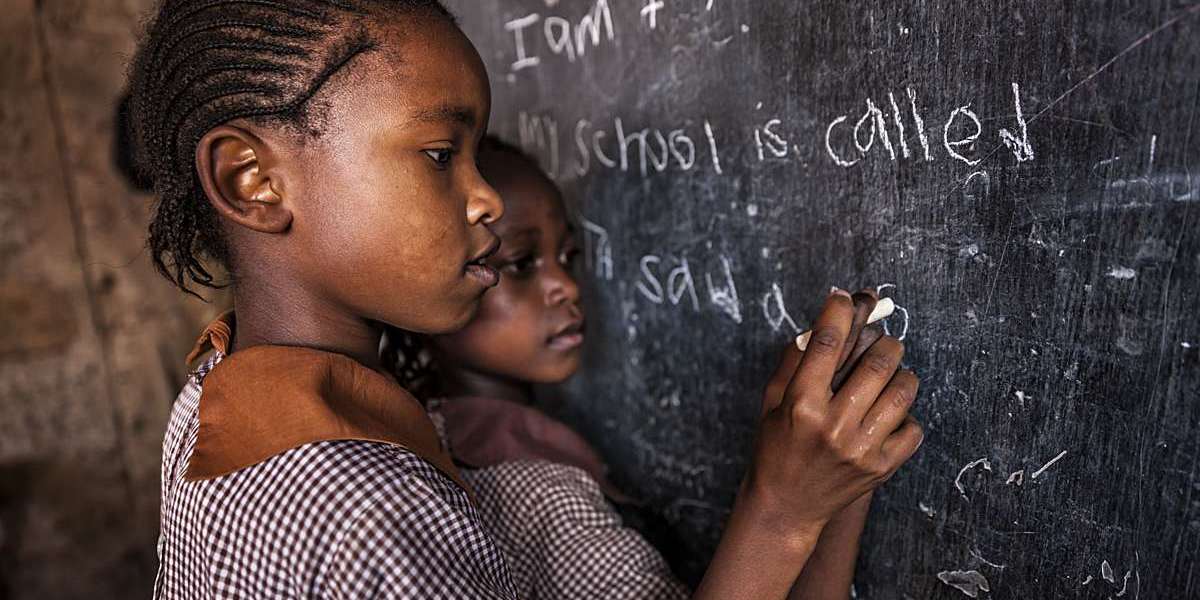 I am
My school is called
I saw a